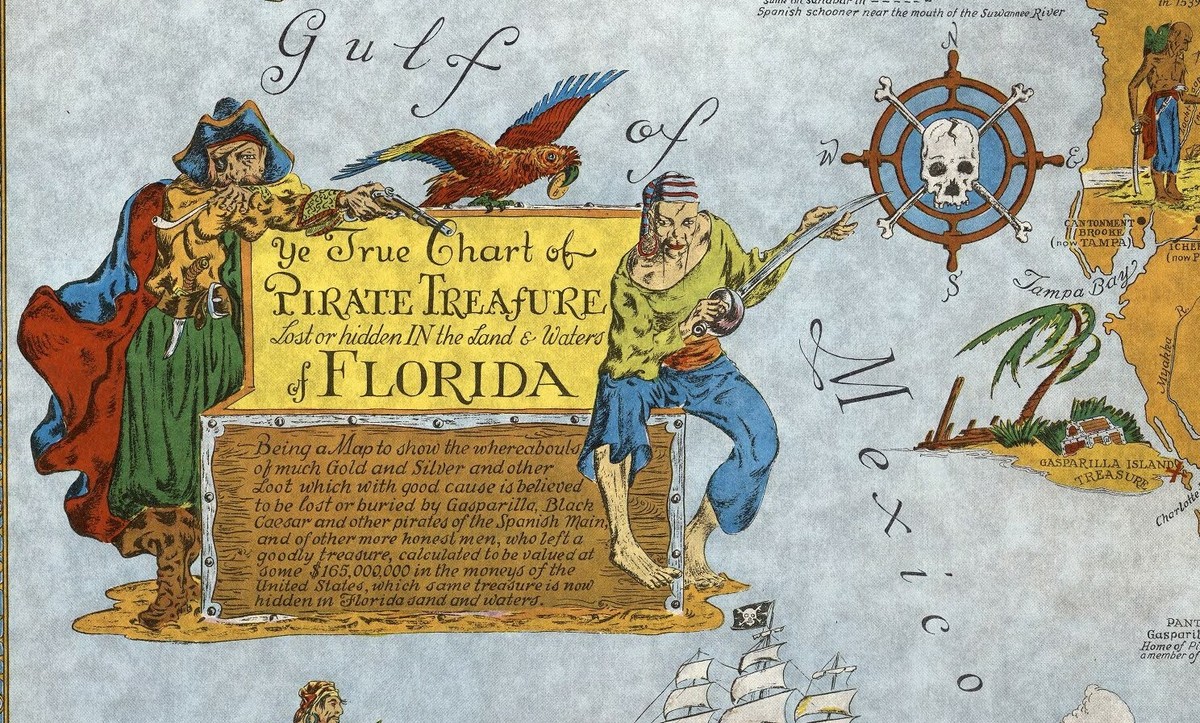 in 1539
Spanish schooner near the mouth of the Suwannee River
Gulf
of
Mexico
N
W
E
S
Ye True Chart of
PIRATE TREASURE
Lost or hidden IN the Land & Waters
of FLORIDA
Being a Map to show the whereabouts
of much Gold and Silver and other
Loot which with good cause is believed
to be lost or buried by Gasparilla, Black
Caesar and other pirates of the Spanish Main,
and of other more honest men, who left a
goodly treasure, calculated to be valued at
some $165,000,000 in the moneys of the
United States, which same treasure is now
hidden in Florida sand and waters.
CANTONMENT
BROOKE
(now TAMPA)
Tampa Bay
Myakka R
GASPARILLA ISLAND
TREASURE
Charlotte
Home of
a member of